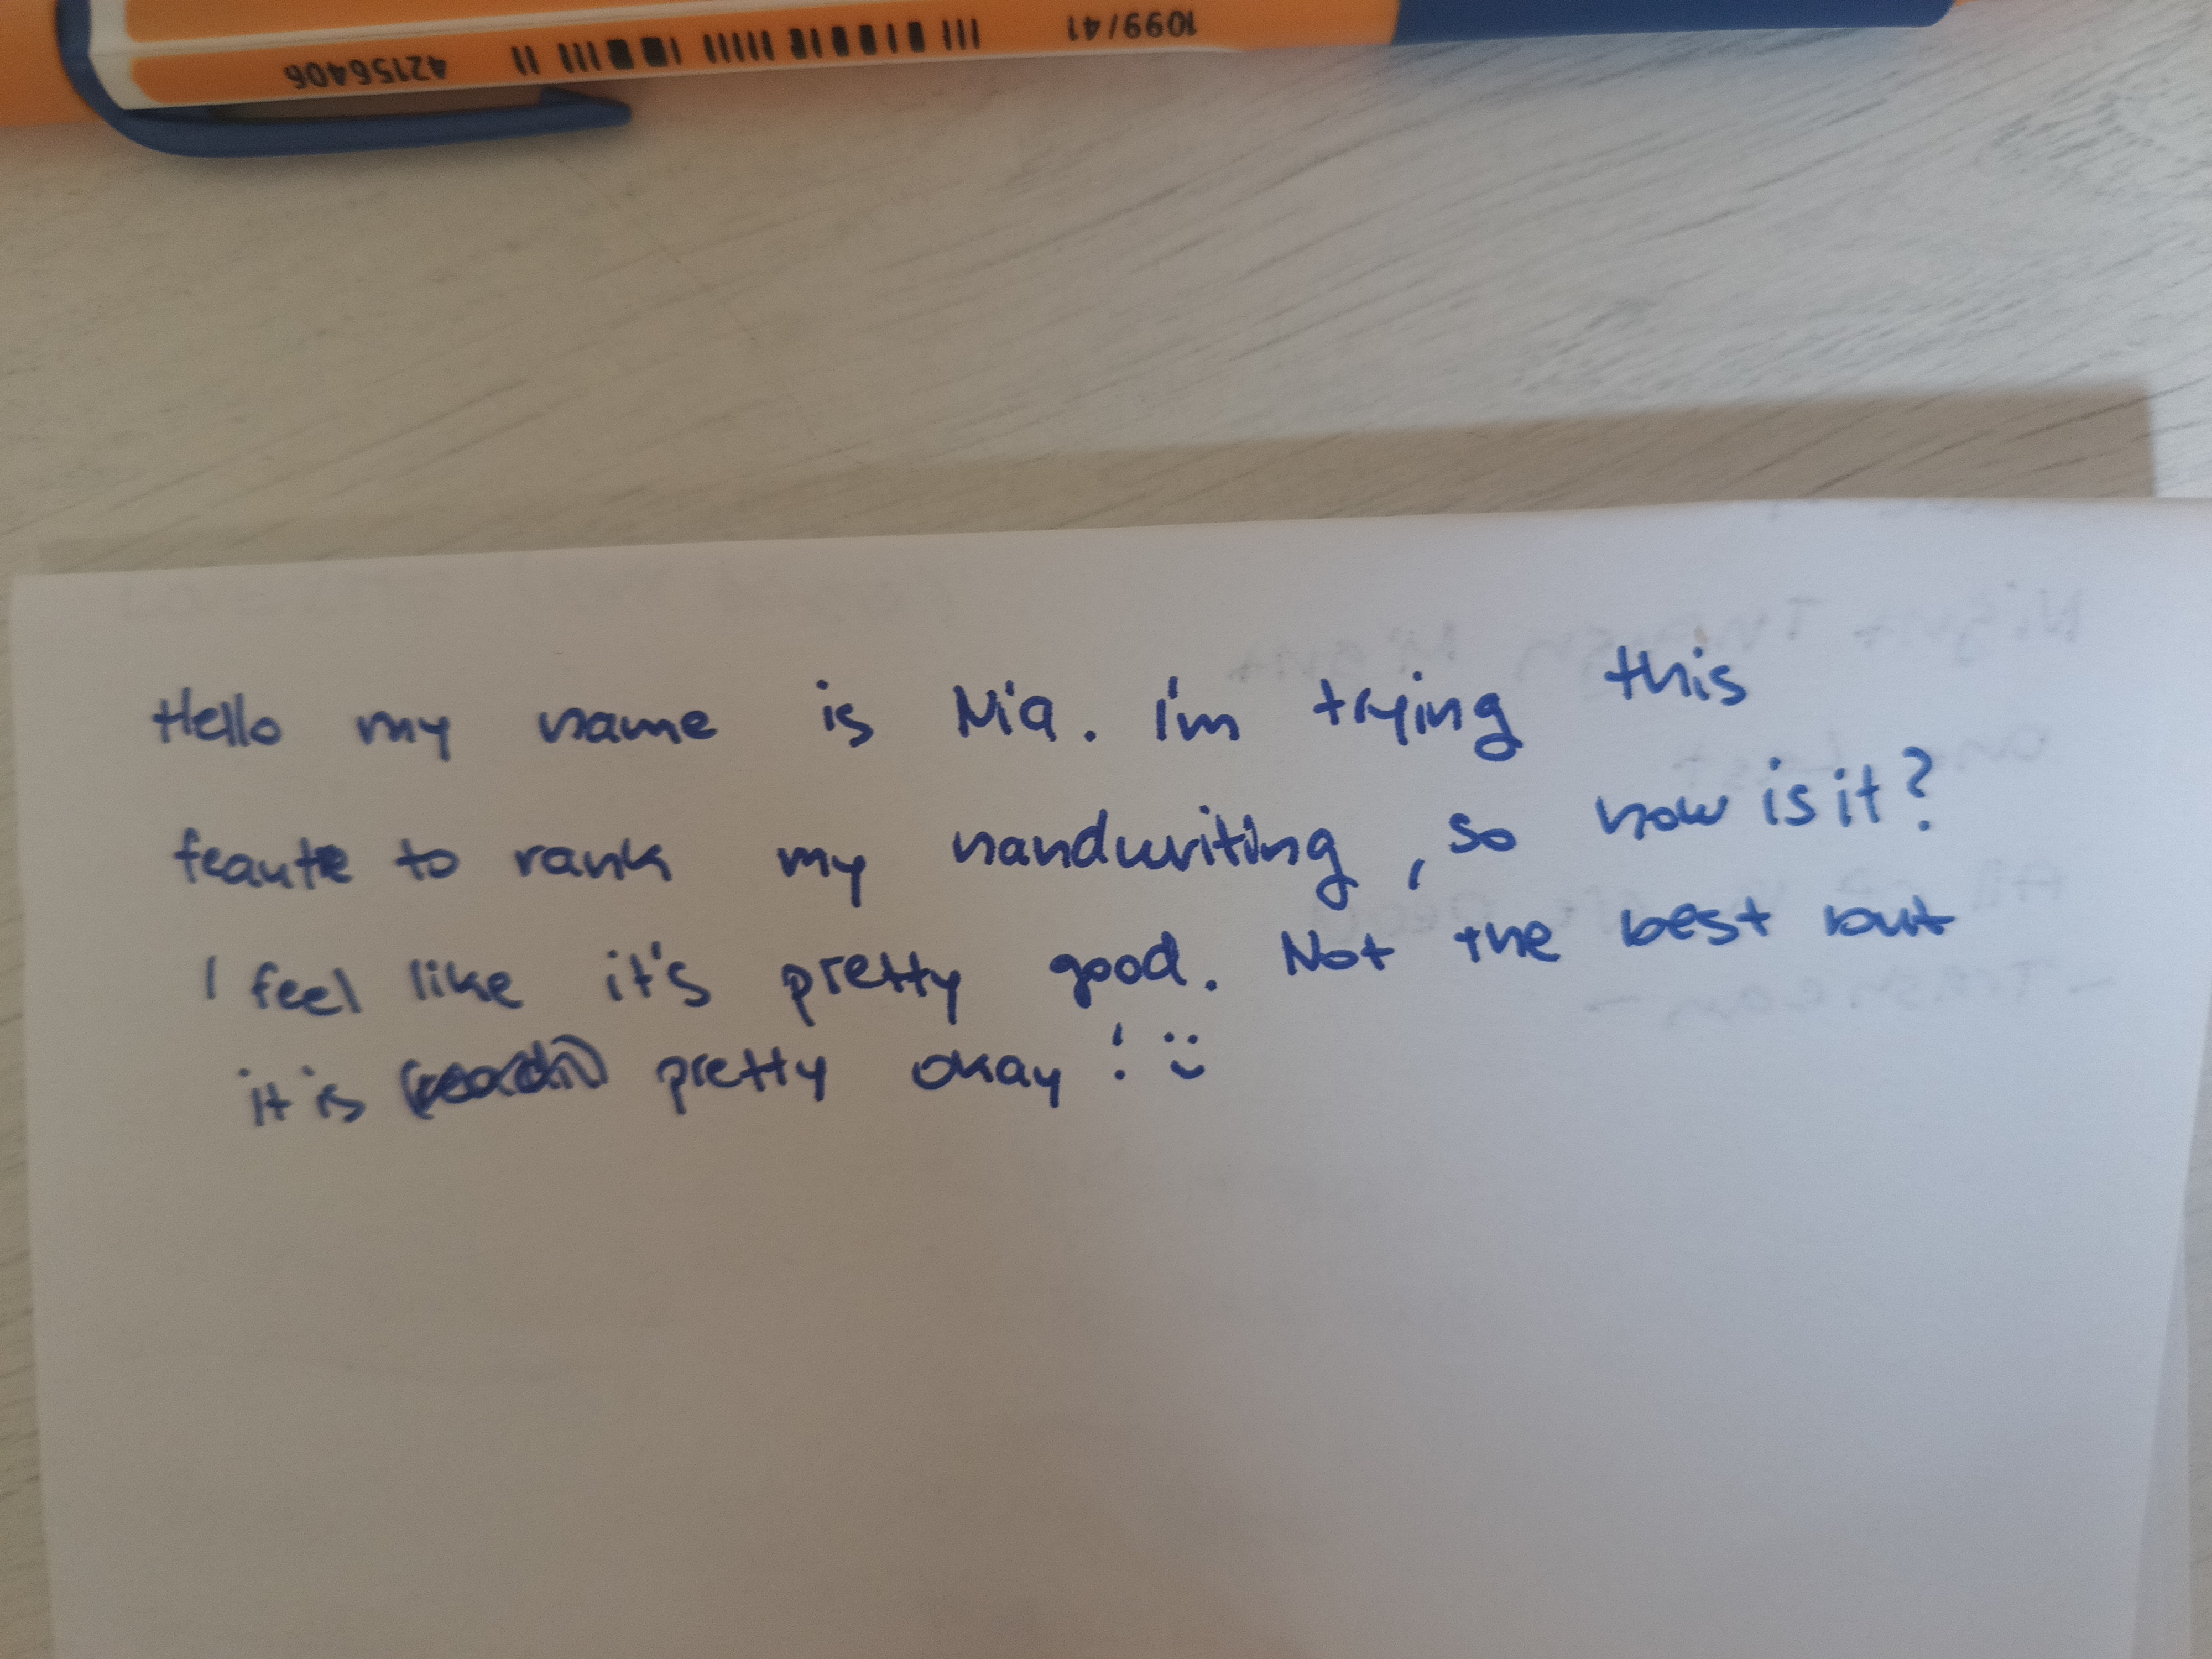 42156406 1099/41
Hello my name is Nia. I'm trying this
feauture to rank my handwriting, so how is it?
I feel like it's pretty good. Not the best but
it is pretty okay! :)